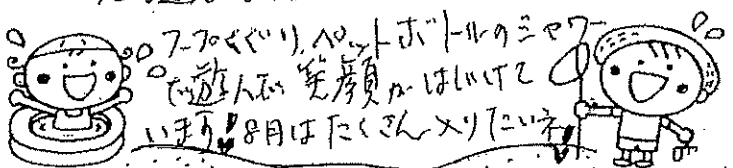 フープくぐり、ペットボトルのシャワー
で遊んで 笑顔が はじけて
います！8月は たくさん 入りたいネ！